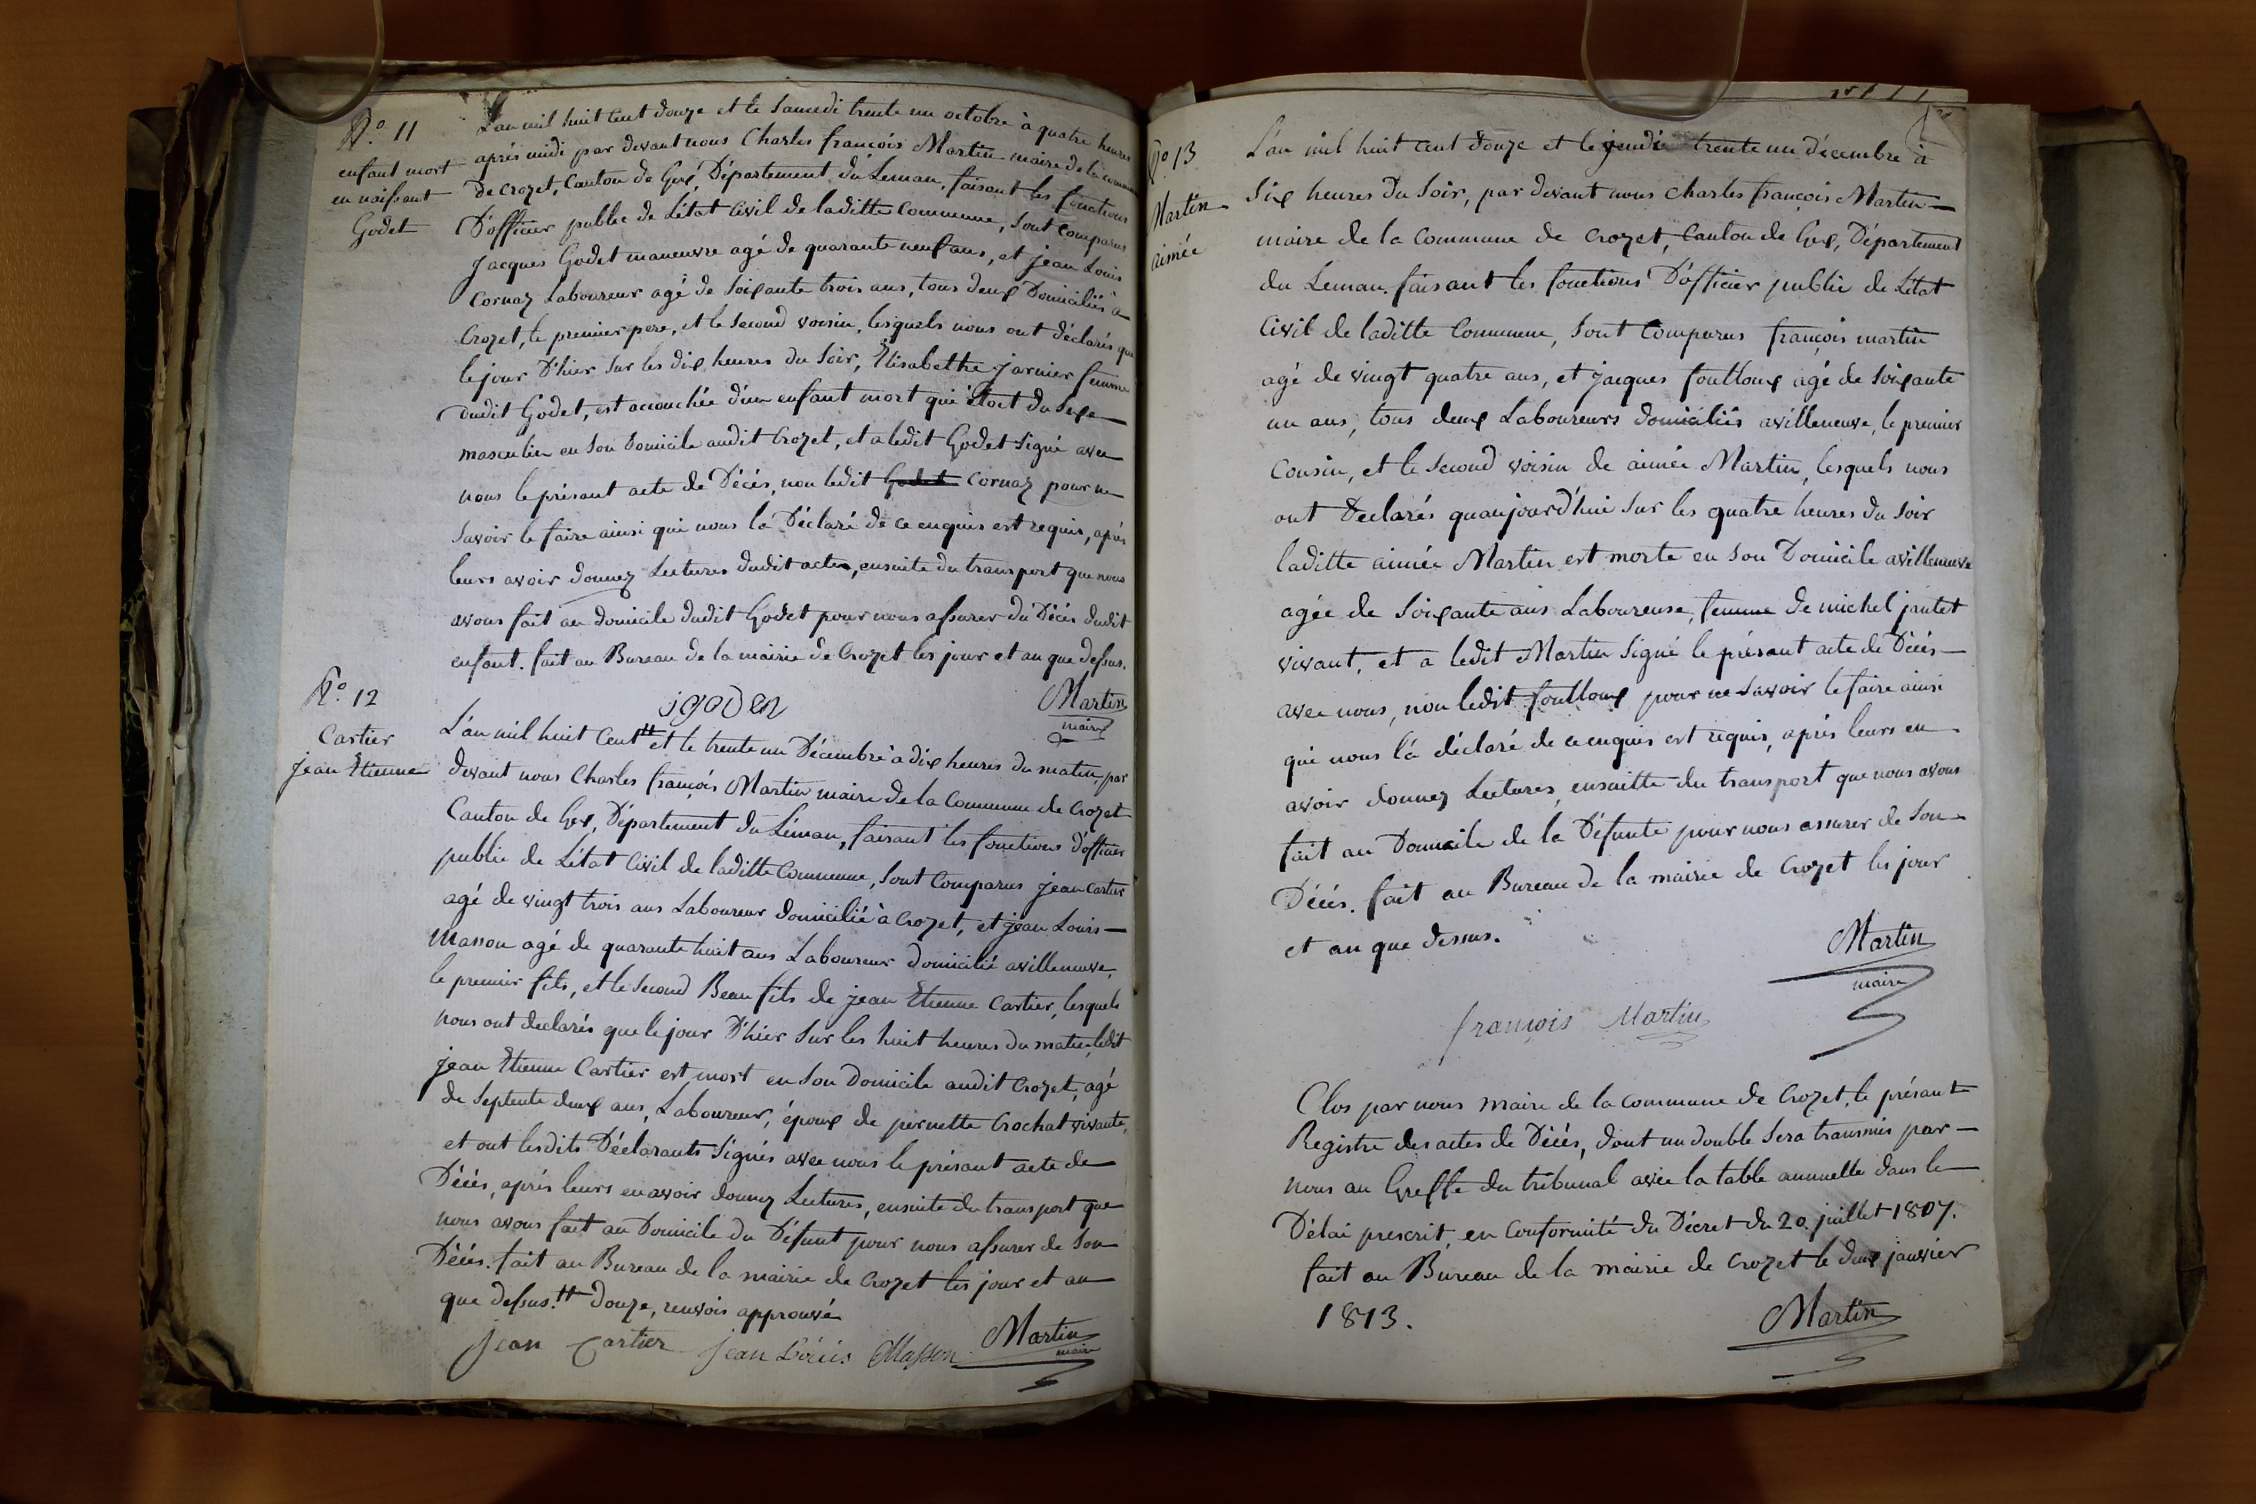 N.o 11
enfant mort
en naissant
Godet
L'an mil huit cent douze et le samedi trente un octobre à quatre heures
après midi par devant nous Charles françois Martin maire de la commune
de Crozet, Canton de Gex, Département du Léman, faisant les fonctions
D'officier public de L'état Civil de laditte Commune, sont comparus
Jacques Godet maneuvre agé de quarante neuf ans, et jean Louis
Cornaz Laboureur agé de soixante trois ans, tous deux Domiciliés à
Crozet, le premier pere, et le second voisin, lesquels nous ont déclarés que
le jour D'hier sur les dix heures du soir, Elisabethe jarnier femme
dudit Godet, est accouchée d'un enfant mort qui étoit du sexe
masculin en son domicile audit Crozet, et a ledit Godet signé avec
nous le présant acte de Décés, non ledit Godet Cornaz pour ne
savoir le faire ainsi qui nous la Déclaré de ce enquis est requis, aprés
leurs avoir donnez Lectures dudit acte, ensuite du transport que nous
avons fait au domicile dudit Godet pour nous assurer du Décés dudit
enfant. fait au Bureau de la mairie de Crozet les jour et an que dessus.
jgodet
Martin
maire
N.o 12
Cartier
jean Etienne
L'an mil huit Cent # et le trente un Décembre à dix heures du matin, par
devant nous Charles françois Martin maire de la Commune de Crozet
Canton de Gex, Département du Léman, faisant les fonctions d'officier
public de L'état Civil de laditte Commune, sont Comparus jean Cartier
agé de vingt trois ans Laboureur domicilié à Crozet, et jean Louis
Masson agé de quarante huit ans Laboureur domicilié avilleneuve,
le premier fils, et le second Beau fils de jean Etienne Cartier, lesquels
nous ont declarés que le jour D'hier sur les huit heures du matin, ledit
jean Etienne Cartier est mort en son Domicile audit Crozet, agé
de septente deux ans, Laboureur, époux de pernette Crochat vivante,
et ont lesdits Déclarants signés avec nous le présant acte de
Décés, aprés leurs en avoir donnez Lectures, ensuite du transport que
nous avons fait au Domicile du Défunt pour nous assurer de son
Décés. fait au Bureau de la mairie de Crozet les jour et an
que dessus. # douze, renvois approuvé
jean Cartier jean Loüis Masson Martin
maire
N.o 13
Martin
aimée
L'an mil huit cent douze et le jeudi trente un décembre à
six heures du soir, par devant nous Charles françois Martin
maire de la Commune de Crozet, Canton de Gex, Département
du Leman, faisant les fonctions D'officier public de L'état
Civil de laditte Commune, sont Comparus françois martin
agé de vingt quatre ans, et jacques foulloux agé de soixante
un ans, tous deux Laboureurs domiciliés avilleneuve, le premier
Cousin, et le second voisin de aimée Martin, lesquels nous
ont Declarés quaujourd'hui sur les quatre heures du soir
laditte aimée Martin est morte en son Domicile avilleneuve
agée de soixante ans Laboureuse, femme de michel jautet
vivant, et a ledit Martin signé le présant acte de Décés
avec nous, non ledit foulloux pour ne savoir le faire ainsi
qui nous l'a déclaré de ce enquis est requis, aprés leurs en
avoir donnez Lectures, ensuitte du transport que nous avons
fait au Domicile de la Défunte pour nous assurer de son
Décés. fait au Bureau de la mairie de Crozet les jour
et an que dessus.
Martin
maire
françois Martin
Clos par nous maire de la commune de Crozet, le présant
Registre des actes de Décés, dont un double sera transmis par
nous au Greffe du tribunal avec la table annuelle dans le
Délai prescrit, en Conformité du Décret du 20. juillet 1807.
fait au Bureau de la mairie de Crozet le deux janvier
1813.
Martin